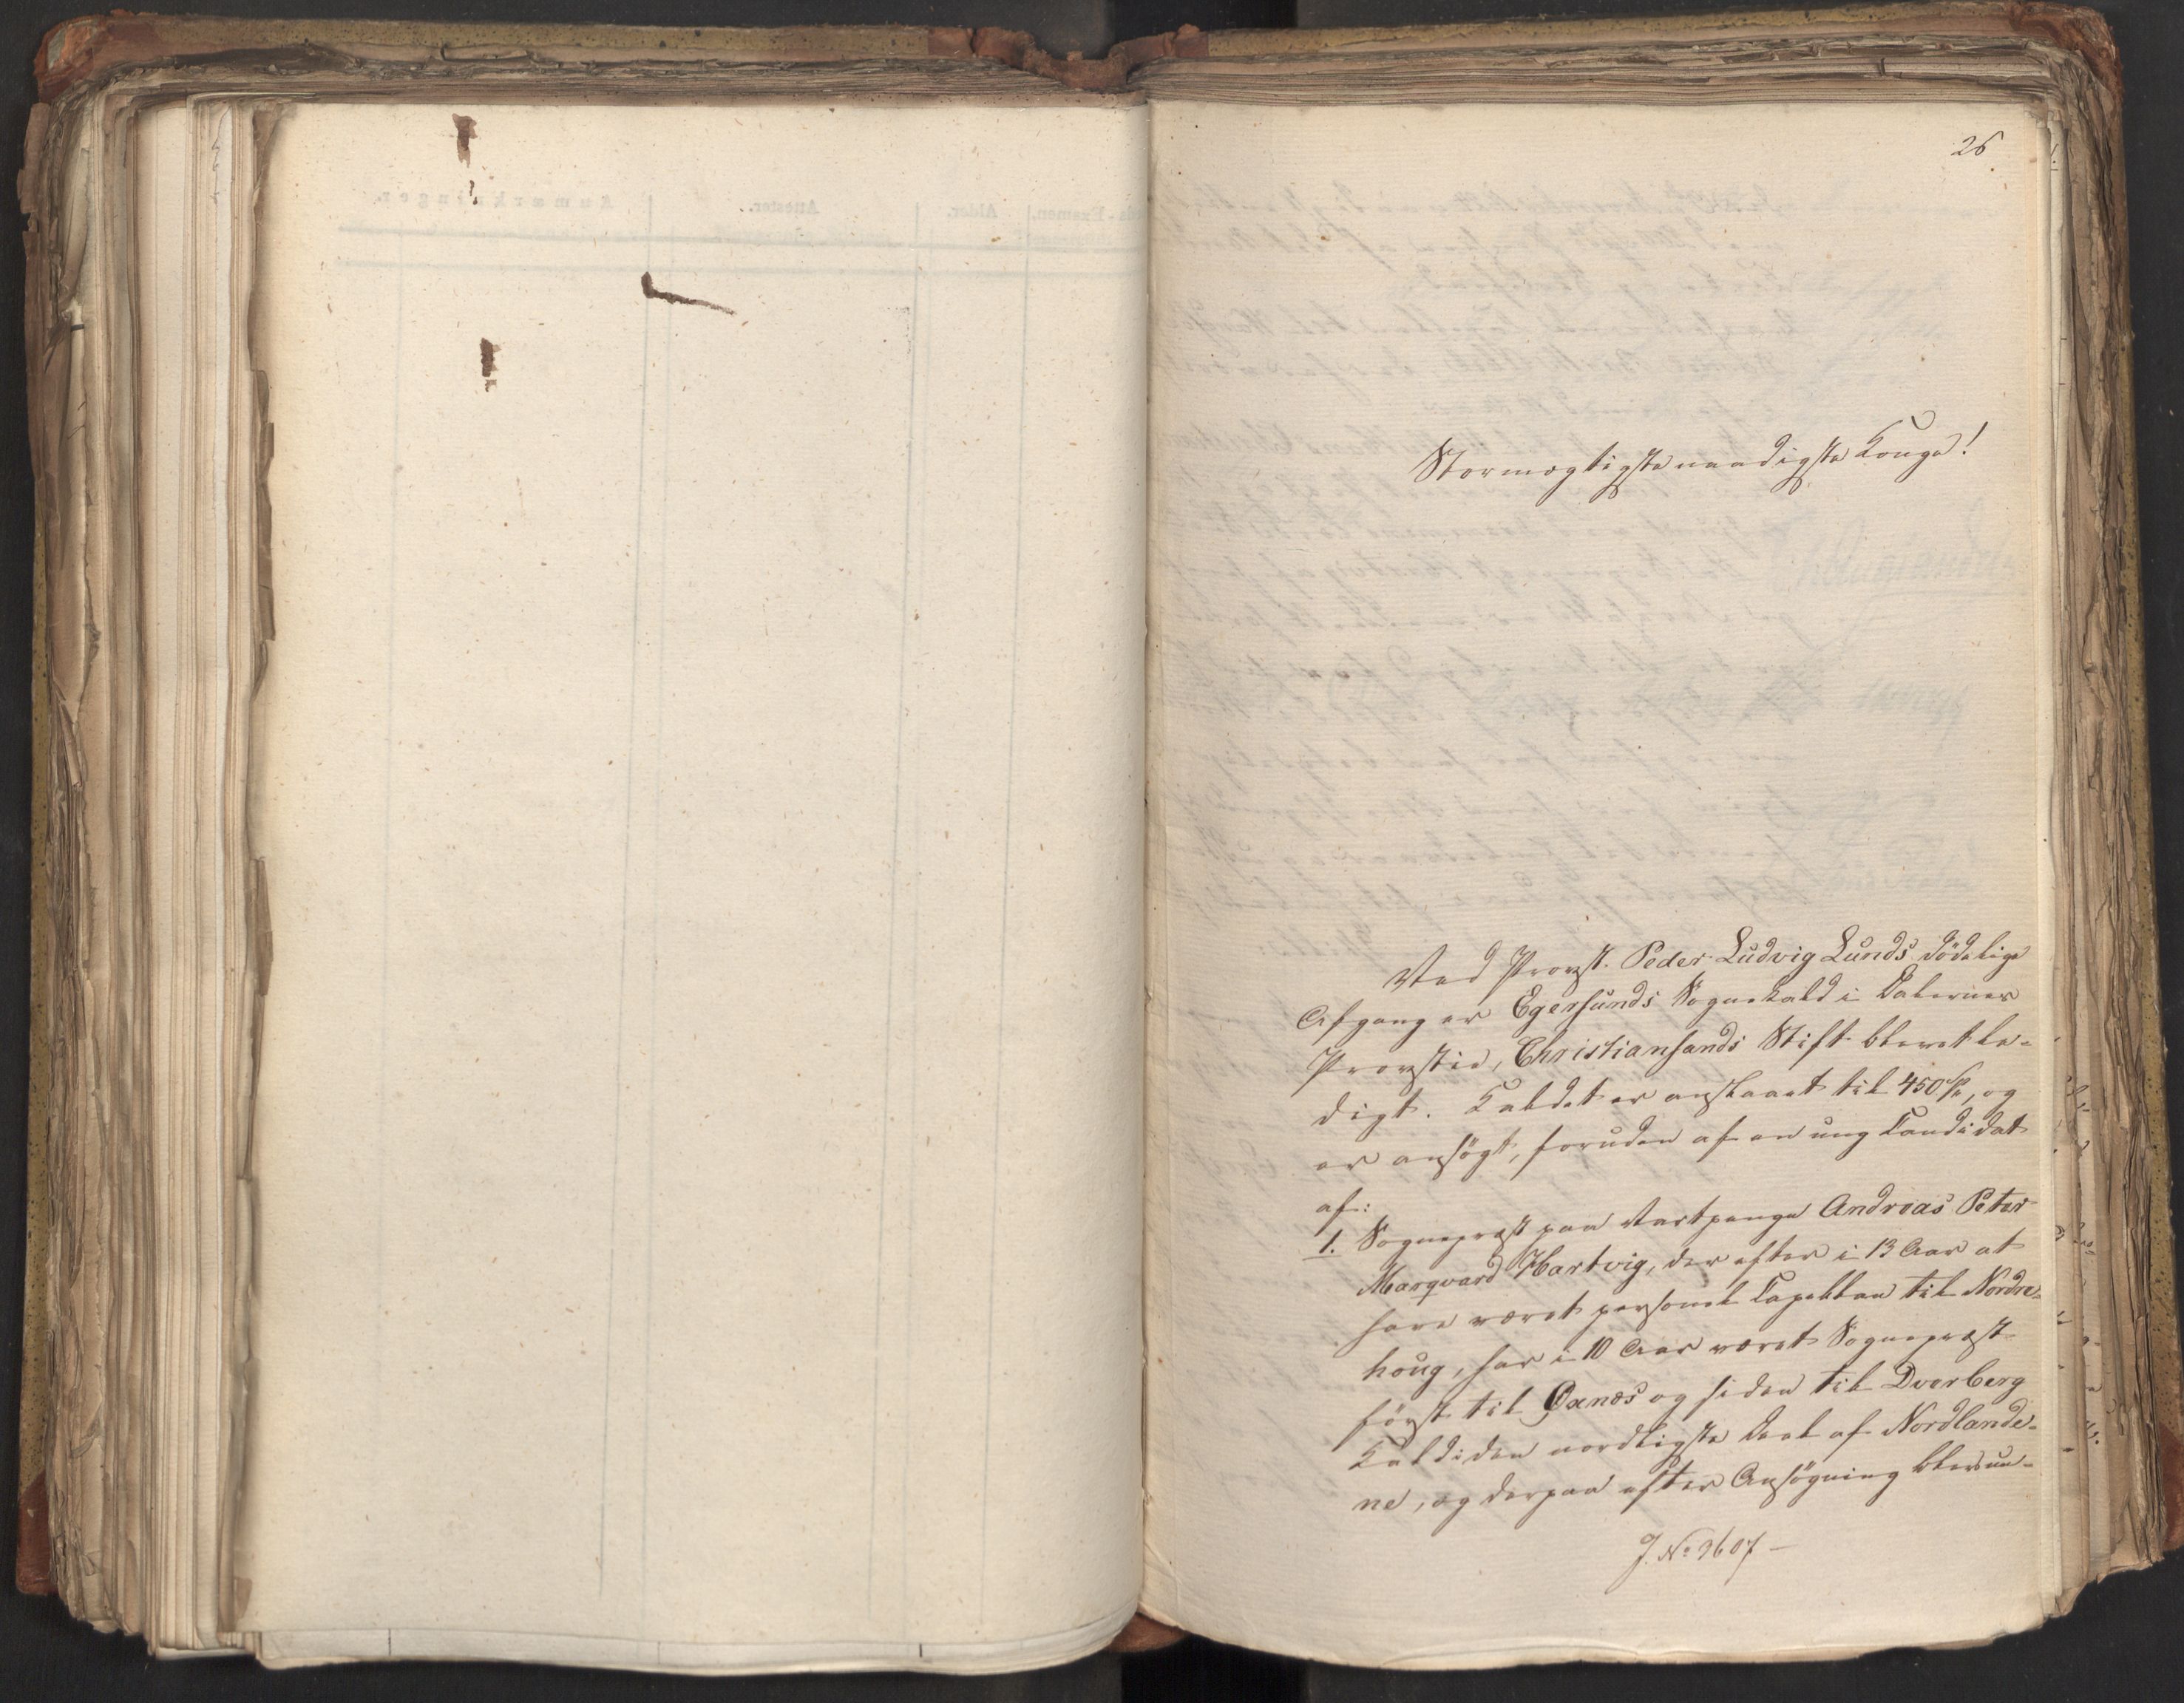 26
Stormægtigste naadigste Konge!
Ved Provst Peder Ludvig Lunds dödelige
Afgang er Egersunds Sognekald i Dalernes
Provstie, Christiansands Stift blevet le-
digt. Kaldet er anslaaet til 450 Sp, og
er ansögt, foruden af en ung Candidat
af:
1. Sognepræst paa Vartpenge Andreas Peter
Marqvard Hartvig, der efter i 13 Aar at
have været personel Capellan til Nordre-
houg, har i 10 Aar været Sognepræst
först til Öxnæs og siden til Dverberg
Kald i den nordligste Deel af Nordlande-
ne, og derpaa efter Ansögning blev un-
J. No 2607 -